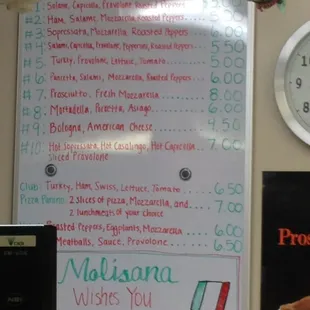 #1 Salami, Capicolla, Provolone 5.00
#2 Ham, Salami, Mozzarella, Roasted Peppers 6.00
#3 Sopressata, Mozzarella, Roasted Peppers 6.00
#4 Salami, Capicolla, Provolone, Pepperoni, Roasted Peppers 5.50
#5 Turkey, Provolone, Lettuce, Tomato 5.50
#6 Pancetta, Salami, Mozzarella, Roasted Peppers 6.00
#7 Prosciutto, Fresh Mozzarella 8.00
#8 Mortadella, Pancetta, Asiago 6.00
#9 Bologna, American Cheese 4.50
#10 Hot Sopressata, Hot Casalingo, Hot Capicolla 7.00
Sliced Provolone
Club Turkey, Ham, Swiss, Lettuce, Tomato 6.50
Pizza Panini 2 slices of pizza, Mozzarella, and 7.00
2 lunchmeats of your choice
Roasted Peppers, Eggplants, Mozzarella 6.00
Meatballs, Sauce, Provolone 6.50
Molisana
Wishes You
10
9
8
Pros